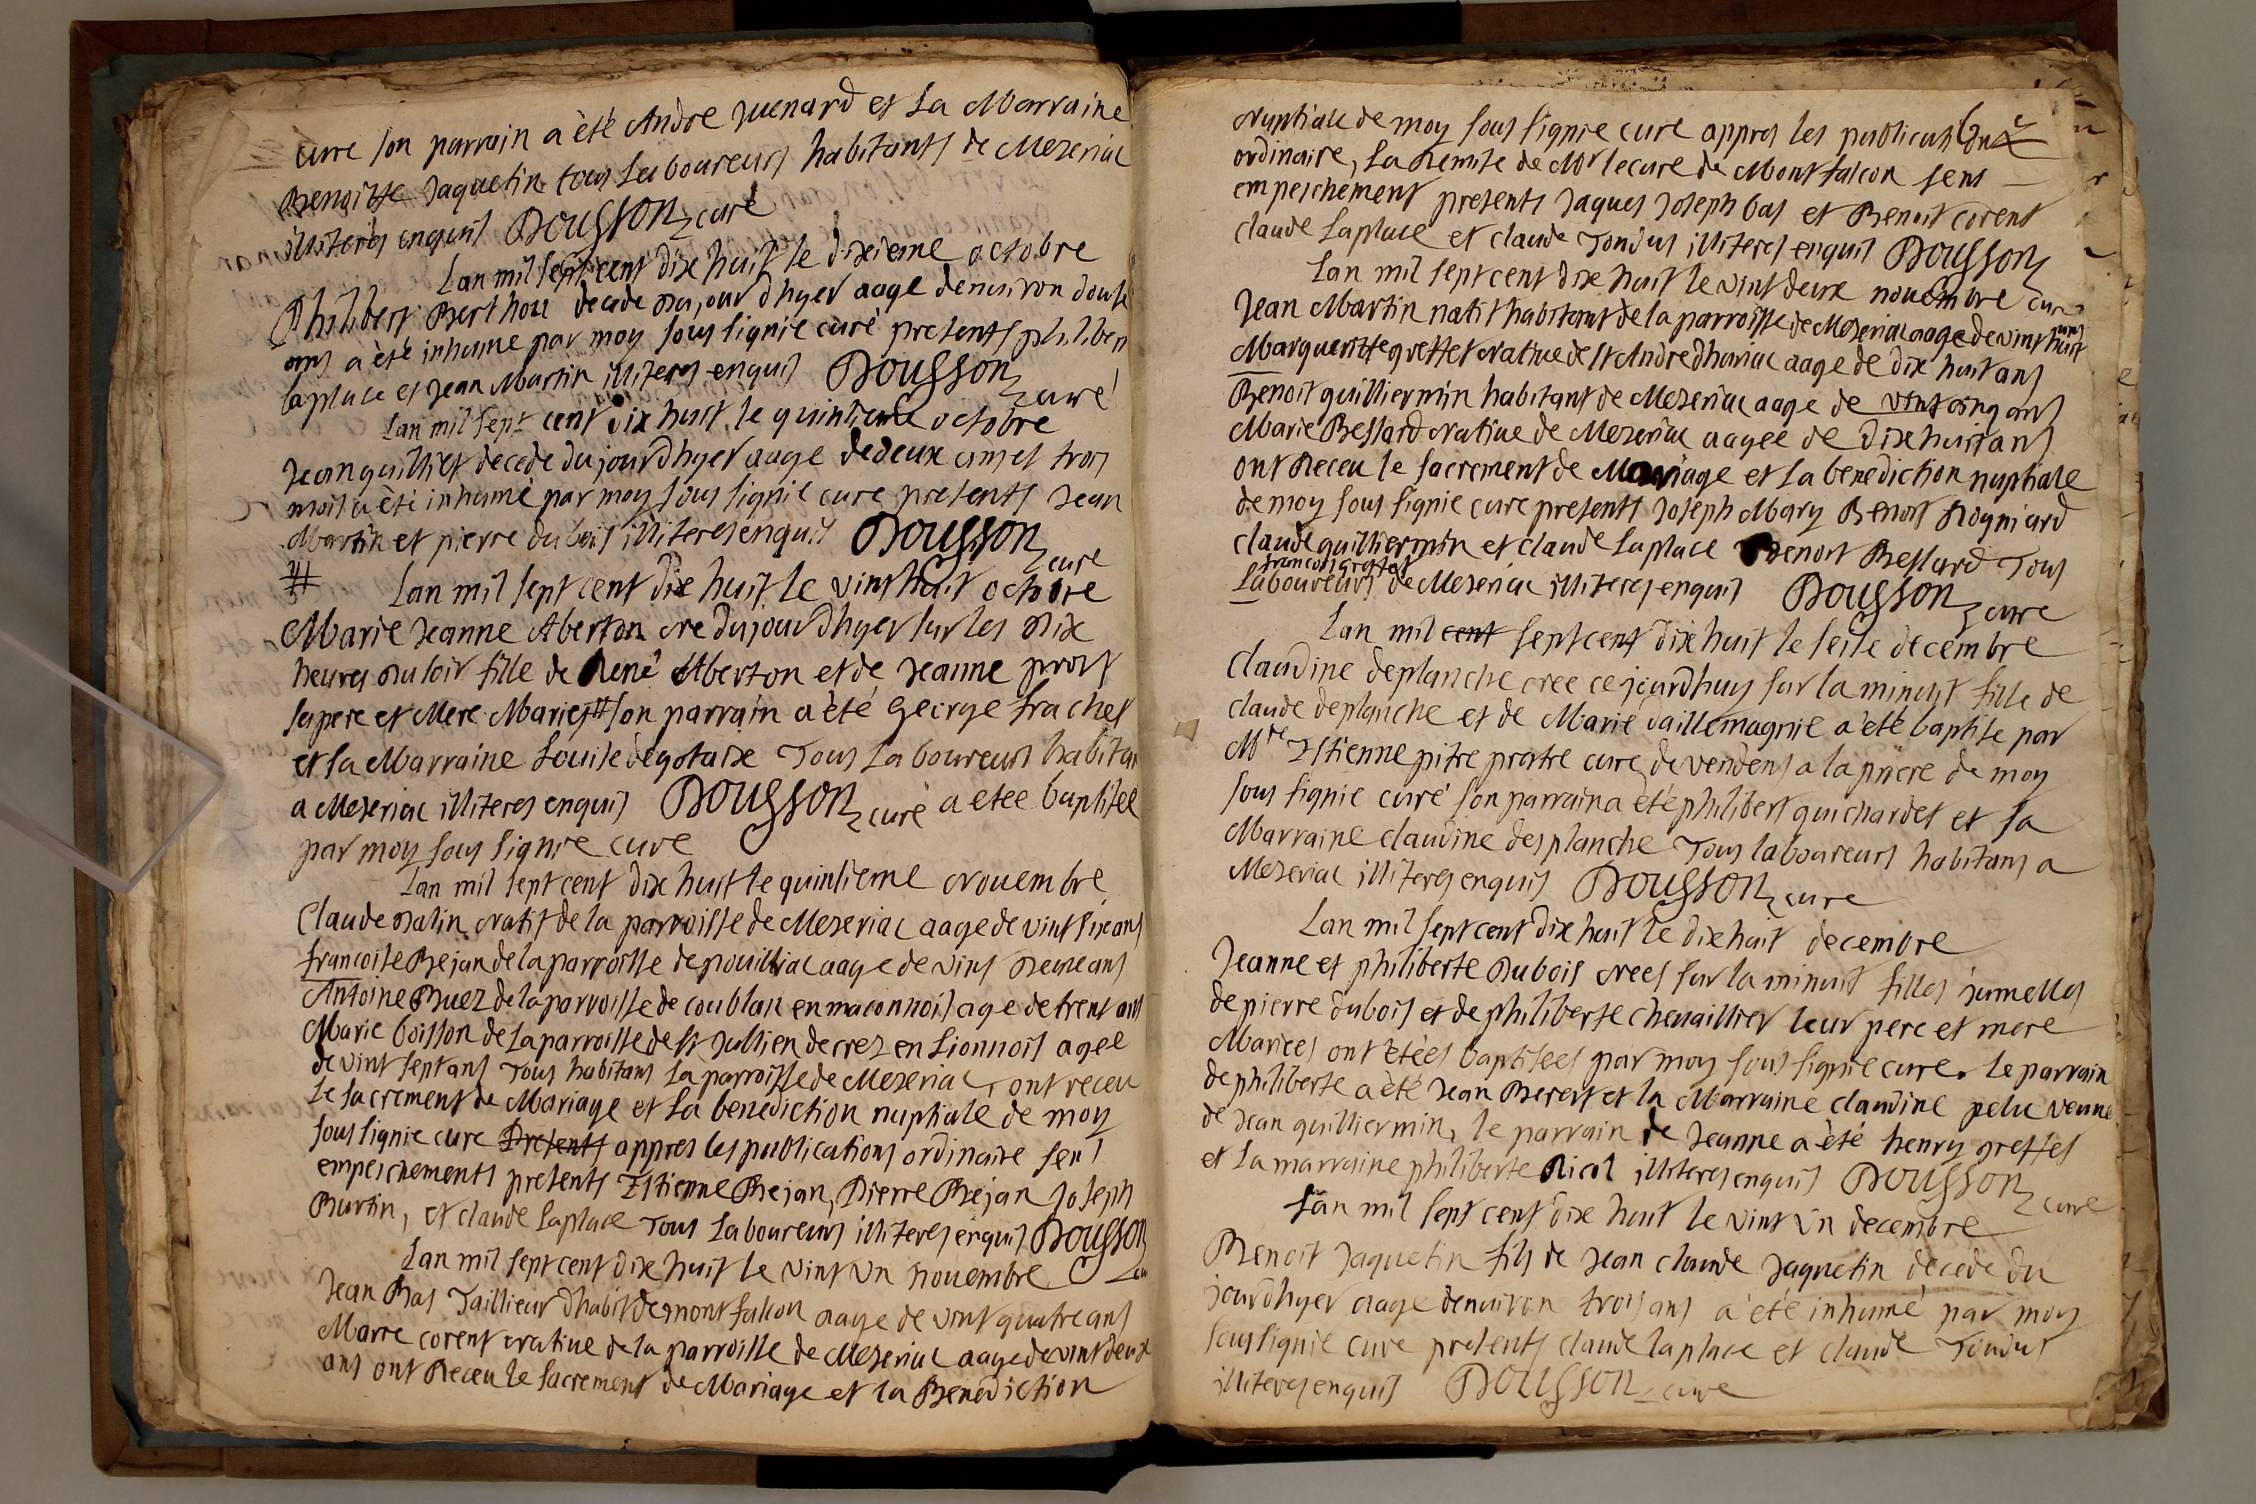 cure son parrain a èté Andre Juenard et la Marraine
Benoitte Jaquetin tous laboureurs habitants de Mezeriac
illiteres enquis Dousson cure
Lan mil sept cent dix huit le dixieme octobre
Philibert Berthou decede du jour dhyer aage denuiron douse
ans a èté inhume par moy sous signie curé presents philiber
laplace et Jean Martin illiteres enquis Dousson curé
Lan mil sept cent dix huit le quinsieme octobre
Jean quilliet decede du jour dhyer aage dedeux ans et trois
mois a èté inhumé par moy sous signie cure presents Jean
Martin et pierre du bois illiteres enquis Dousson cure
# Lan mil sept cent dix huit le vint huit octobre
Marie Jeanne Aberton nee du jour dhyer sur les dix
heures du soir fille de René Aberton et de Jeanne prost
ses pere et Mere Mariés # son parrain a èté George frachet
et sa Marraine Louise degotaise Tous laboureurs habitan
a Mezeriac illiteres enquis Dousson curé a etee baptisee
par moy sous signie cure
Lan mil sept cent dix huit le quinsieme nouembre
Claude Salin natif de la parroisse de Mezeriac aage de vint six ans
francoise Bejan de la parroisse de pouilliac aage de vins neuf ans
Antoine Buez de la parroisse de coublan en maconnois age de trent ans
Marie boisson de la parroisse de st Jullien de crez en Lionnois agee
de vint sept ans Tous habitans la parroisse de Mezeriac ont receu
le sacrement de Mariage et la benediction nuptiale de moy
sous signie cure presents appres les publications ordinaire sens
empeschements presents Estienne Bejan, Pierre Bejan Joseph
Burtin, et claude laplace Tous laboureurs illiteres enquis Dousson
Lan mil sept cent dix huit le vint vn nouembre cu
Jean Bas Taillieur dhabit de mont falcon aage de vint quatre ans
Marre corent natiue de la parroisse de Mezeriac aage de vint deux
ans ont Receu le sacrement de Mariage et la Benediction
nuptiale de moy sous signie cure appres les publications
ordinaire, la Remise de Mr lecure de Mont falcon sens
empeschement presents Jaques Joseph bas et Benoit corent
claude laplace et claude Tondus illiteres enquis Dousson
Lan mil sept cent dix huit le vint deux nouembre cure
Jean Martin natif habitant de la parroisse de Mezeriac aage de vint huit ans
Margueritte greffet natiue de st Andre dhuiriac aage de dix huit ans
Benoit quilliermin habitant de Mezeriac aage de vint cinq ans
Marie Bessard natiue de Mezeriac aagee de dix huit ans
ont Receu le sacrement de Mariage et la benediction nuptiale
de moy sous signie cure presents Joseph Mary Benoit Rogniard
claude quilliermin et claude laplace Benoit Bessard Tous
francois greffet
laboureurs de Mezeriac illiteres enquis Dousson cure
Lan mil cent sept cent dix huit le seise decembre
Claudine deplanche nee ce jourdhuy sur la minuit fille de
claude deplanche et de Marie daillemagnie a èté baptise par
Mre Estienne pitre pretre cure de vendens a la priere de moy
sous signie curé son parrain a èté philibert guichardet et sa
Marraine claudine desplanche Tous laboureurs habitans a
Mezeriac illiteres enquis Dousson cure
Lan mil sept cent dix huit le dix huit decembre
Jeanne et philiberte Dubois nees sur la minuit filles jumelles
de pierre dubois et de philiberte cheuaillier leur pere et mere
Mariees ont etées baptisees par moy sous signie cure. le parrain
de philiberte a èté Jean Berert et la Marraine claudine pelu veuue
de Jean quilliermin, le parrain de Jeanne a èté henry greffet
et la marraine philiberte Nicol illiteres enquis Dousson cure
Lan mil sept cent dix huit le vint vn decembre
Benoit Jaquetin fils de Jean claude Jaquetin decede du
jour dhyer aage denuiron trois ans a èté inhumé par moy
sous signie cure presents claude laplace et claude Tondus
illiteres enquis Dousson cure